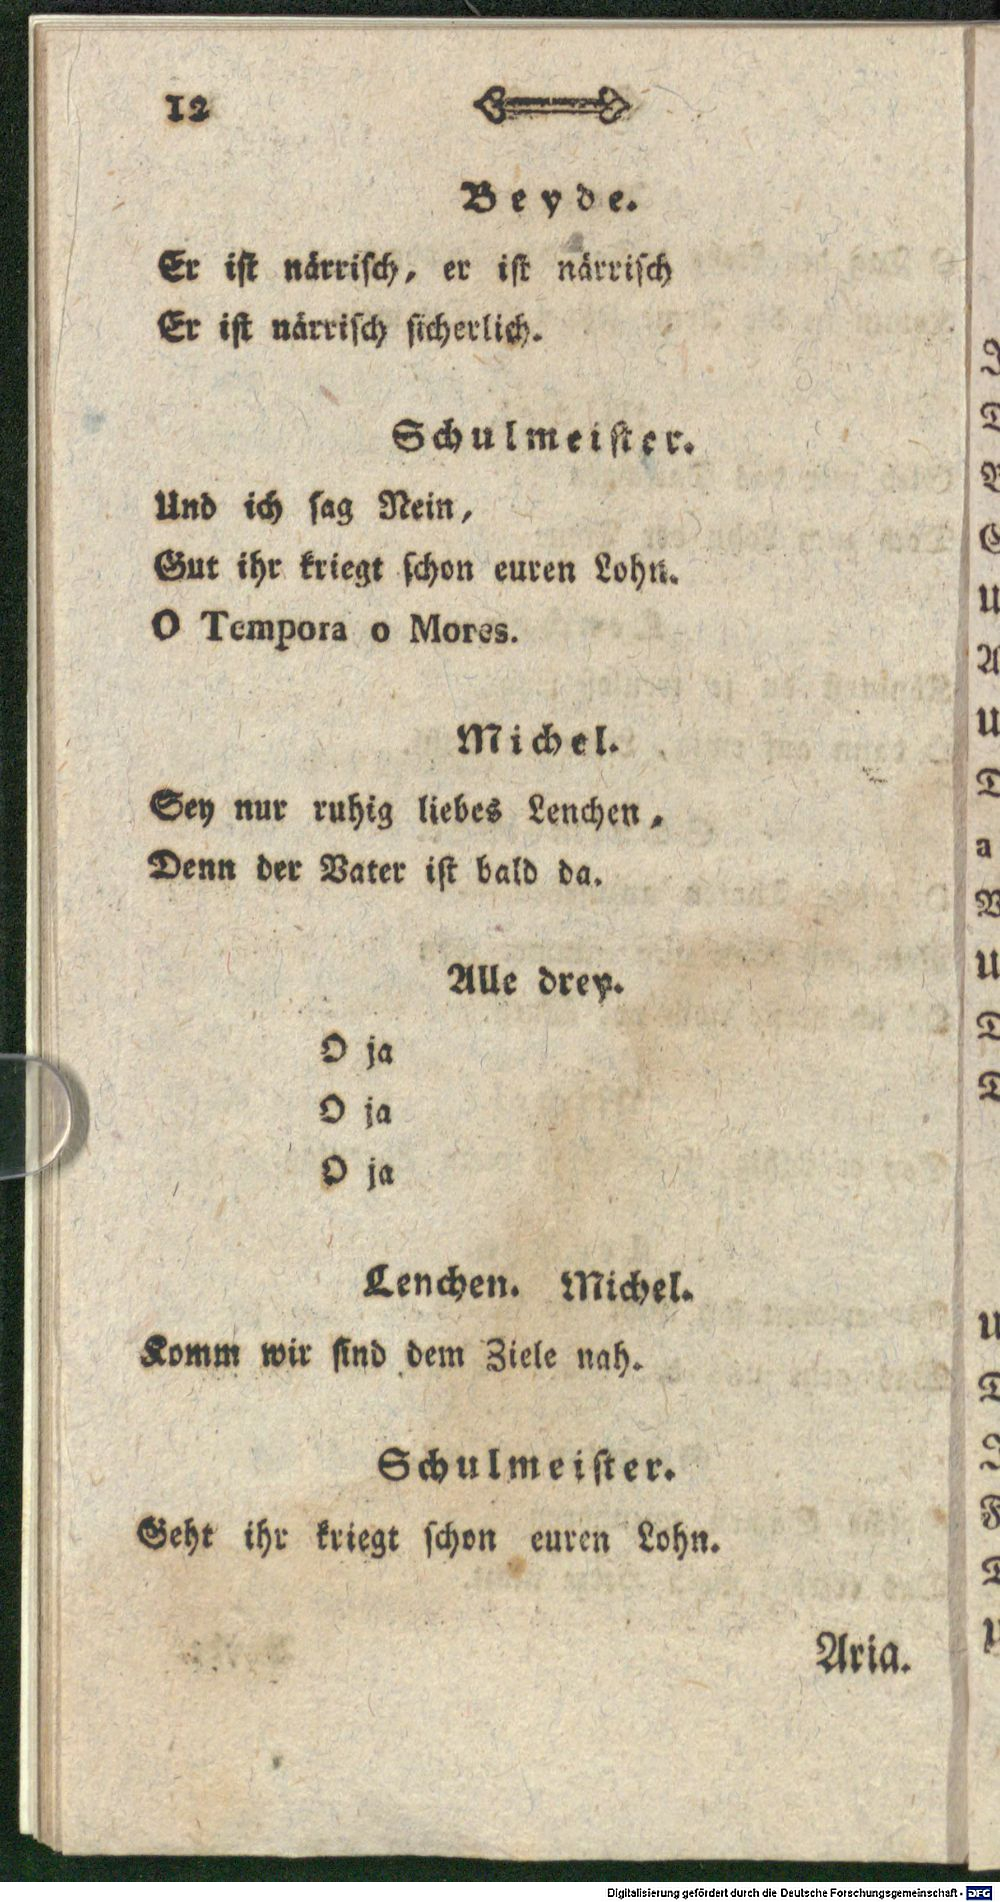 12
Beyde.
Er iſt närriſch, er iſt närriſch
Er iſt närriſch ſicherlich.
Schulmeiſter.
Und ich ſag Nein,
Gut ihr kriegt ſchon euren Lohn.
O Tempora o Mores.
Michel.
Sey nur ruhig liebes Lenchen,
Denn der Vater iſt bald da.
Alle drey.
O ja
O ja
O ja
Lenchen. Michel.
Komm wir ſind dem Ziele nah.
Schulmeiſter.
Geht ihr kriegt ſchon euren Lohn.
Aria.
Digitalisierung gefördert durch die Deutsche Forschungsgemeinschaft - DFG